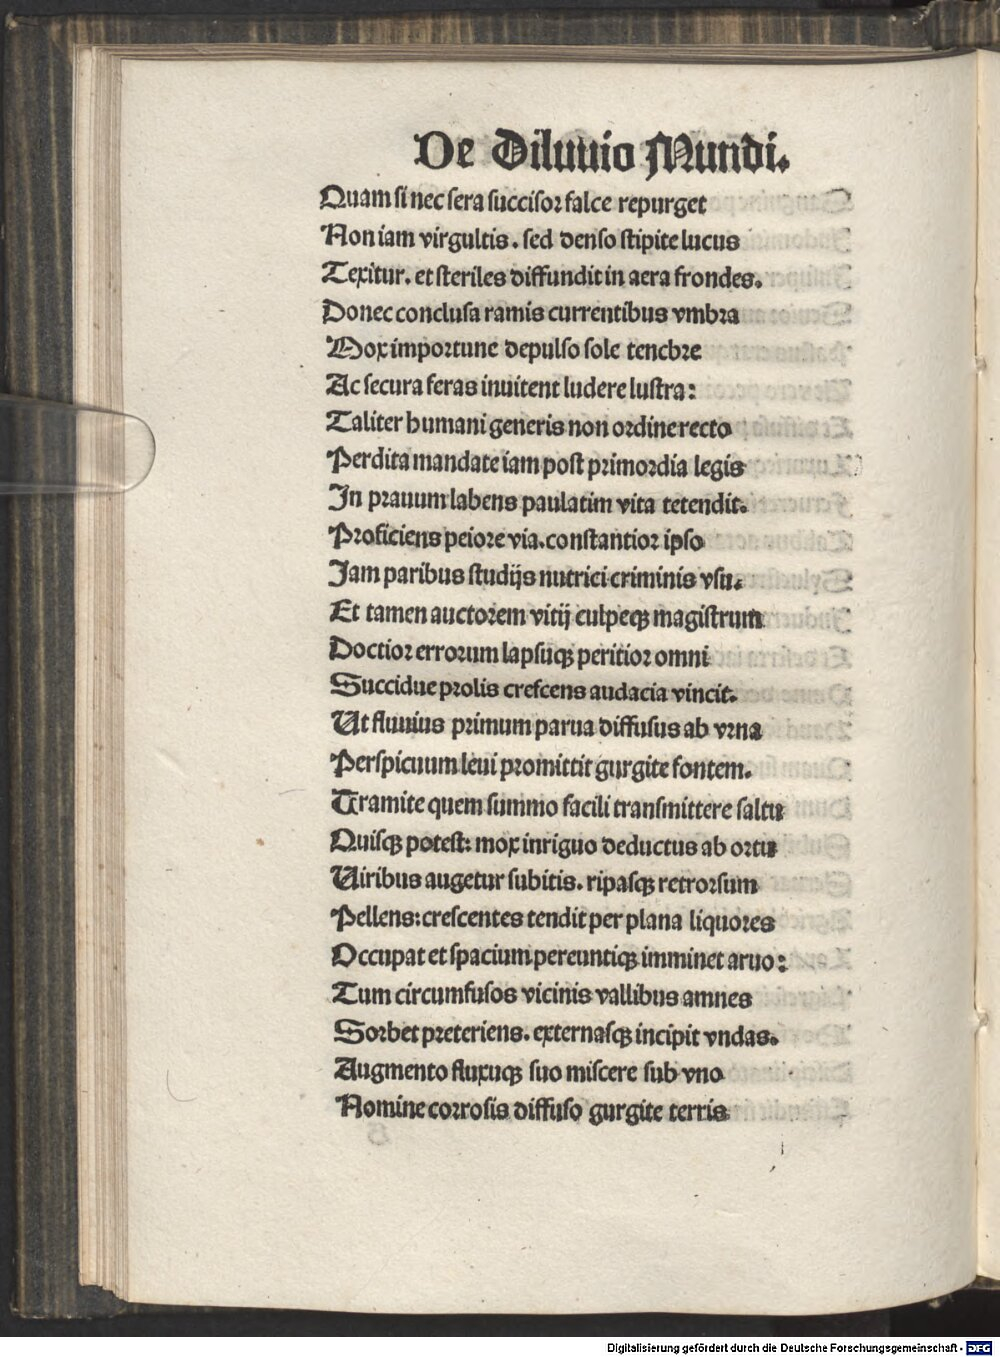 De Diluuio Mundi.
Quam si nec sera succisor falce repurget
Non iam virgultis. sed denso stipite lucus
Texitur. et steriles diffundit in aera frondes.
Donec conclusa ramis currentibus vmbra
Mox importune depulso sole tenebre
Ac secura feras inuitent ludere lustra:
Taliter humani generis non ordine recto
Perdita mandate iam post primordia legis
In prauum labens paulatim vita tetendit.
Proficiens peiore via. constantior ipso
Jam paribus studijs nutrici criminis vsu.
Et tamen auctorem vitij culpeqꝫ magistrum
Doctior errorum lapsuqꝫ peritior omni
Succidue prolis crescens audacia vincit.
Ut fluuius primum parua diffusus ab vrna
Perspicuum leui promittit gurgite fontem.
Tramite quem summo facili transmittere saltu
Quisqꝫ potest: mox inriguo deductus ab ortu
Uiribus augetur subitis. ripasqꝫ retrorsum
Pellens: crescentes tendit per plana liquores
Occupat et spacium pereuntiqꝫ imminet aruo:
Tum circumfusos vicinis vallibus amnes
Sorbet preteriens. externasqꝫ incipit vndas.
Augmento fluxuqꝫ suo miscere sub vno
Nomine corrosis diffuso gurgite terris
Digitalisierung gefördert durch die Deutsche Forschungsgemeinschaft - DFG